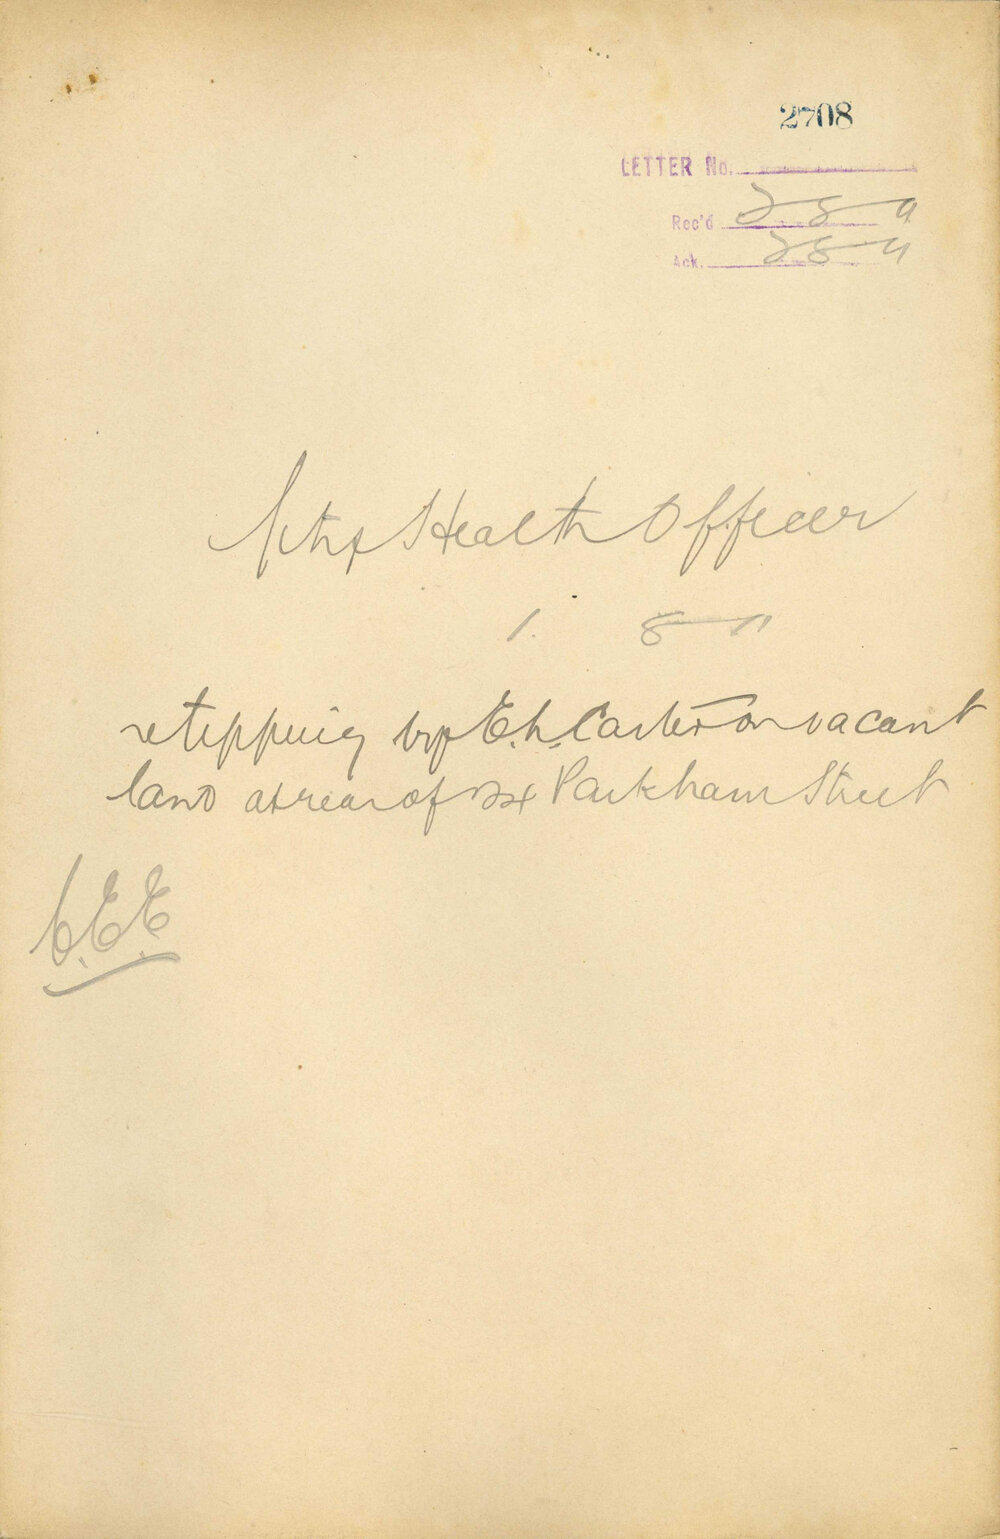 2708
LETTER No.
Rec'd 2 8 11
Ack. 2 8 11
City Health Officer
1. 8 11
re tipping by E. h. Carter on vacant
land at rear of 24 Parkham Street
C.E.E